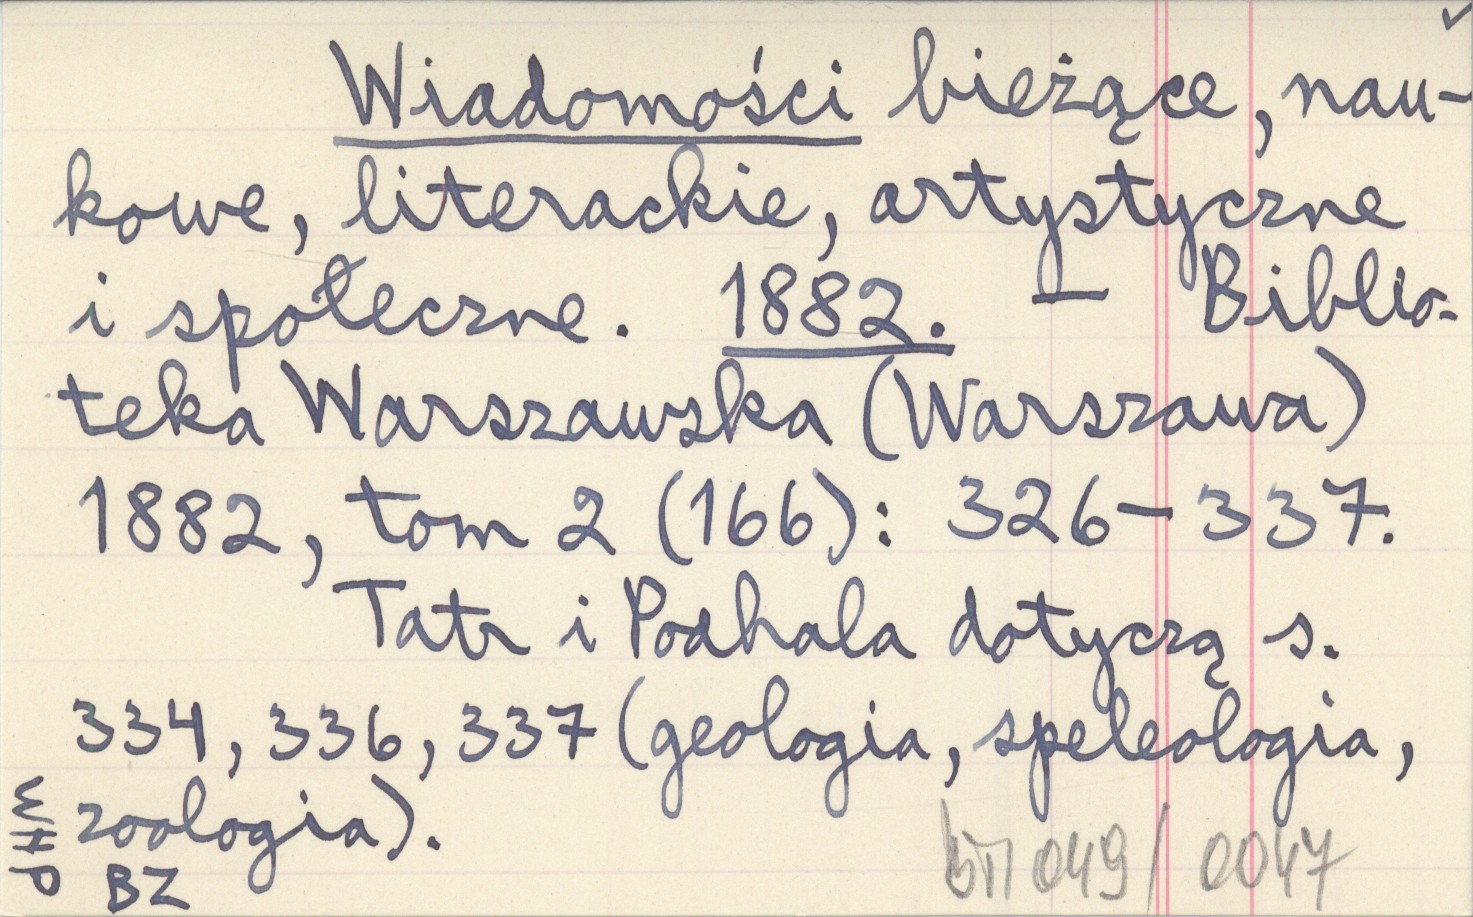 Wiadomości bieżące, nau-
kowe, literackie, artystyczne
i społeczne. 1882. — Biblio-
teka Warszawska (Warszawa)
1882, tom 2 (166): 326-337.
Tatr i Podhala dotyczą s.
334, 336, 337 (geologia, speleologia,
zoologia).
BZ
049/0047